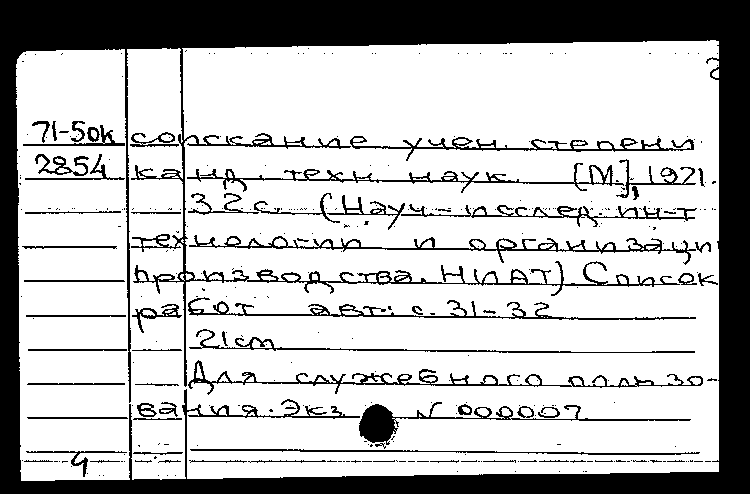 2
71-5ок соискание учен. степени
2854 канд. техн. наук. [М.], 1971.
32с. (Науч-исслед. ин-т
технологии и организации
производства. НИАТ) Список
работ авт.: с. 31-32
21см
Для служебного пользо-
вания. Экз. N 000007
9